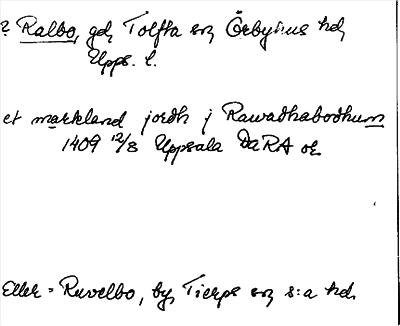 ? Ralbo, gd, Tolfta sn Örbyhus hd,
Upps. l.
et markland jordh j Rawadhabodhum
1409 12/8 Uppsala DaRA or
Eller = Ruvelbo, by, Tierps sn s:a hd.